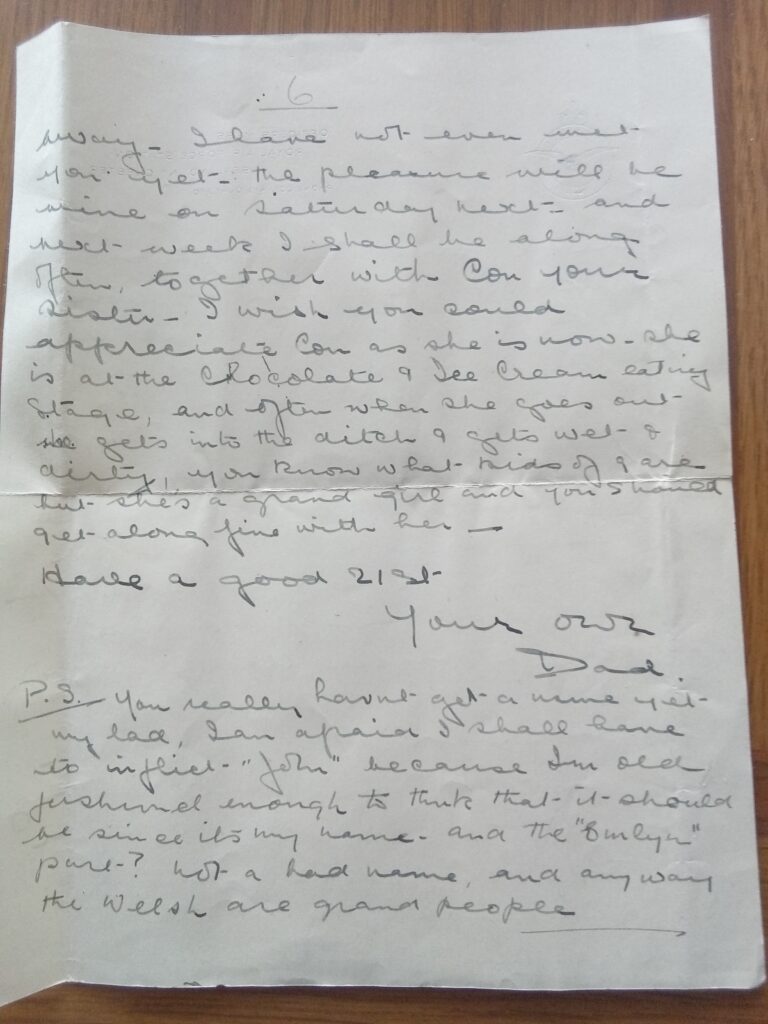 6
away - I have not even met
you yet - the pleasure will be
mine on Saturday next - and
next week I shall be along
often, together with Con your
sister - I wish you could
appreciate Con as she is now - she
is at the Chocolate & Ice Cream eating
stage, and often when she goes out
she gets into the ditch & gets wet &
dirty, you know what kids of 9 are
but she's a grand girl and you should
get along fine with her —
Have a good 21st
Your own
Dad.
P.S. You really havnt got a name yet
my lad, I am afraid I shall have
to inflict "John" because Im old
fashioned enough to think that it should
be since its my name - and the "Emlyn"
part? not a bad name, and anyway
the Welsh are grand people